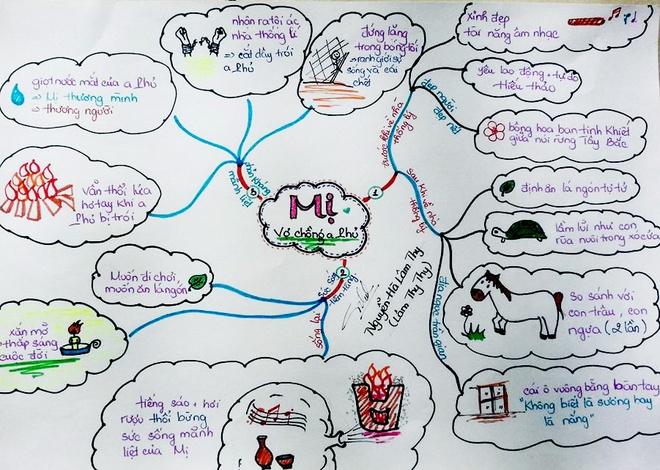 Mị
Vợ chồng a Phủ
1
trước khi về nhà
thống lý
đẹp người
đẹp nết
xinh đẹp
tài năng âm nhạc
yêu lao động + tự do
hiếu thảo
bông hoa ban tinh khiết
giữa núi rừng Tây Bắc
sau khi về nhà
thống lý
định ăn lá ngón tự tử
lầm lũi như con
rùa nuôi trong xó cửa
so sánh với
con trâu, con
ngựa (2 lần)
cái ô vuông bằng bàn tay
"không biết là sương hay
là nắng"
2
sức sống
tiềm tàng
Muốn đi chơi,
muốn ăn lá ngón
xắn mỡ
→ thắp sáng
cuộc đời
tiếng sáo + hơi
rượu thổi bừng
sức sống mãnh
liệt của Mị
3
phản kháng
mãnh liệt
đứng lặng
trong bóng tối
→ ranh giới sự
sống và cái
chết
nhận ra tội ác
nhà thống lí
=> cắt dây trói
a Phủ
giọt nước mắt của a Phủ
=> Mị thương mình
→ thương người
vẫn thổi lửa
hơ tay khi a
Phủ bị trói
Nguyễn Hà Lâm Thy
(Lâm Thy Thy)